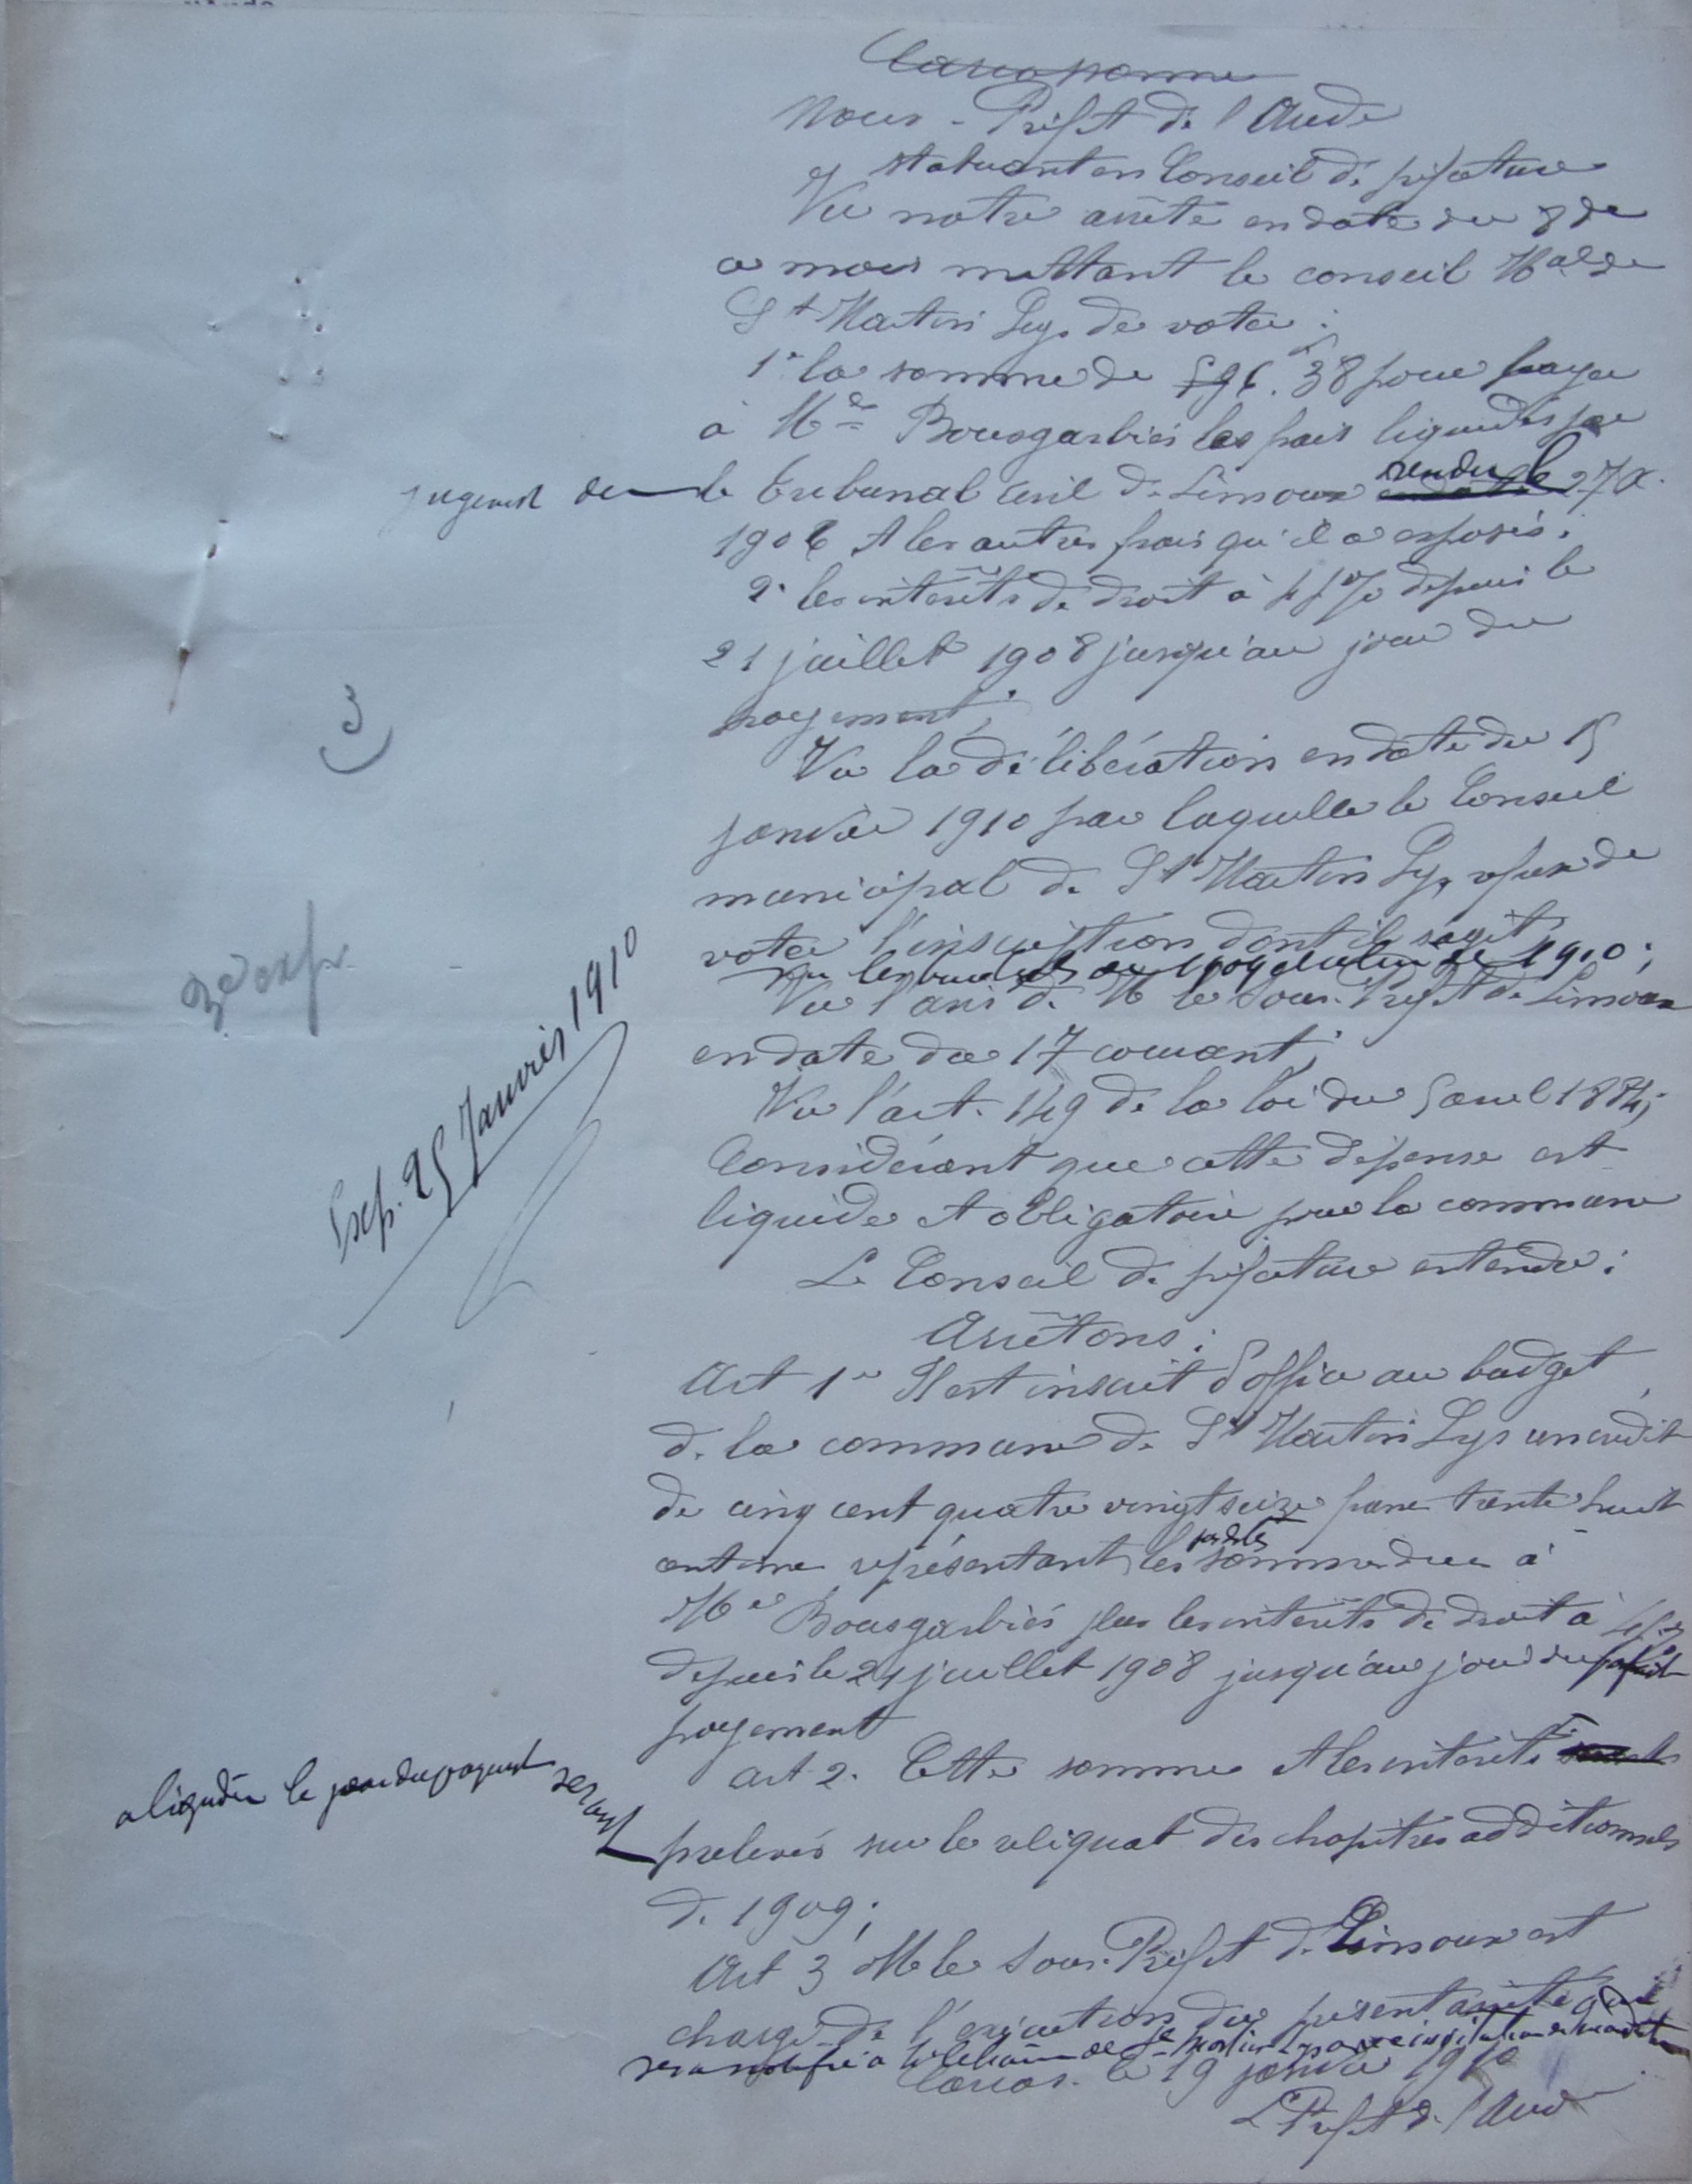 Carcassonne
Nous - Préfet de l'Aude
statuant en Conseil de préfecture
Vu notre arrêté en date du 8 de
ce mois mettant le conseil Mal de
St Martin Lys de voter :
1° la somme de 596.38 pour payer
à Me Bousgarbiès les frais liquidés par
jugement du le tribunal civil de Limoux rendu le 27 X
1906 et les autres frais qu'il a exposés ;
2° les intérêts de droit à 4 % depuis le
21 juillet 1908 jusqu'au jour du
payement ;
Vu la délibération en date du 15
janvier 1910 par laquelle le Conseil
municipal de St Martin Lys refuse de
voter l'inscription dont il s'agit
Vu les budgets de 1909 et celui de 1910 ;
Vu l'avis de M le Sous-Préfet de Limoux
en date du 17 courant ;
Vu l'art. 149 de la loi du 5 avril 1884 ;
Considérant que cette dépense est
liquide et obligatoire pour la commune
Le Conseil de préfecture entendu :
Arrêtons :
Art 1er Il est inscrit d'office au budget
de la commune de St Martin Lys un crédit
de cinq cent quatre vingt seize francs trente huit
centimes représentant les sommes dues à
Me Bousgarbiès plus les intérêts de droit à
depuis le 21 juillet 1908 jusqu'au jour du
payement
Art 2. Cette somme et les intérêts
à liquider le jour du payement seront
prélevés sur le reliquat des chapitres additionnels
de 1909 ;
Art 3 M le Sous-Préfet de Limoux est
chargé de l'exécution du présent arrêté qui
sera notifié à M le Maire de St Martin Lys avec invitation de mandater
Carcas. le 19 janvier 1910
Le Préfet de l'Aude
3
3e exp.
Exp. 25 Janvier 1910